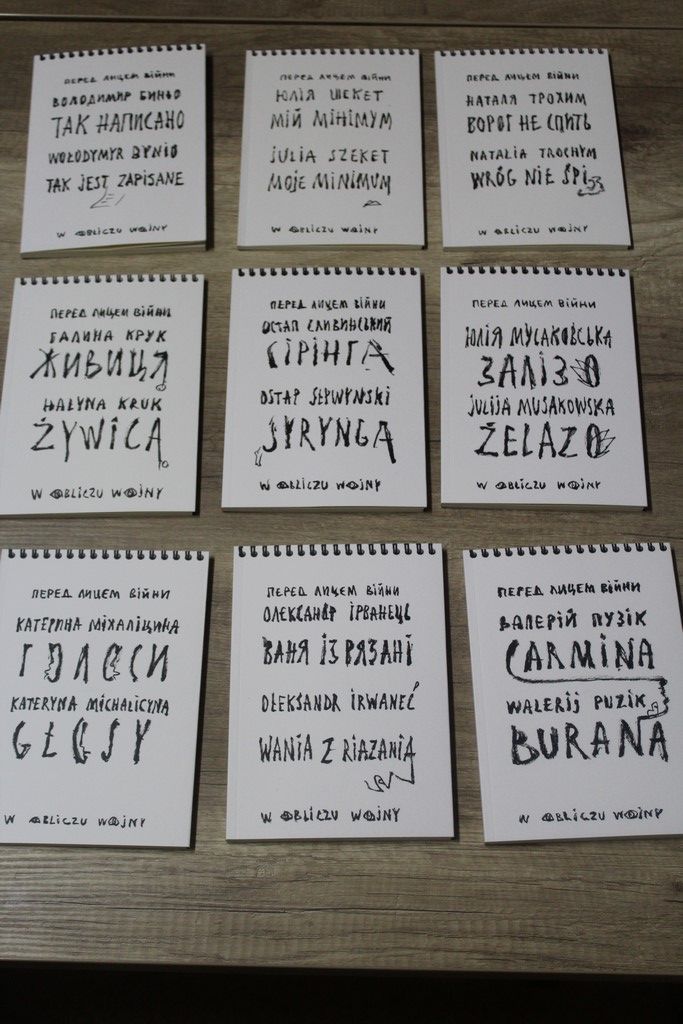 ПЕРЕД ЛИЦЕМ ВІЙНИ
ВОЛОДИМИР БИНЬО
ТАК НАПИСАНО
WOŁODYMYR BYNIO
TAK JEST ZAPISANE
W OBLICZU WOJNY
ПЕРЕД ЛИЦЕМ ВІЙНИ
ЮЛІЯ ШЕКЕТ
МІЙ МІНІМУМ
JULIA SZEKET
MOJE MINIMUM
W OBLICZU WOJNY
ПЕРЕД ЛИЦЕМ ВІЙНИ
НАТАЛЯ ТРОХИМ
ВОРОГ НЕ СПИТЬ
NATALIA TROCHYM
WRÓG NIE ŚPI
W OBLICZU WOJNY
ПЕРЕД ЛИЦЕМ ВІЙНИ
ГАЛИНА КРУК
ЖИВИЦЯ
HAŁYNA KRUK
ŻYWICA
W OBLICZU WOJNY
ПЕРЕД ЛИЦЕМ ВІЙНИ
ОСТАП СЛИВИНСЬКИЙ
СІРІНГА
OSTAP SŁYWYNSKI
SYRYNGA
W OBLICZU WOJNY
ПЕРЕД ЛИЦЕМ ВІЙНИ
ЮЛІЯ МУСАКОВСЬКА
ЗАЛІЗО
JULIJA MUSAKOWSKA
ŻELAZO
W OBLICZU WOJNY
ПЕРЕД ЛИЦЕМ ВІЙНИ
КАТЕРИНА МІХАЛІЦИНА
ГОЛОСИ
KATERYNA MICHALICYNA
GŁOSY
W OBLICZU WOJNY
ПЕРЕД ЛИЦЕМ ВІЙНИ
ОЛЕКСАНДР ІРВАНЕЦЬ
ВАНЯ ІЗ РЯЗАНІ
OŁEKSANDR IRWANEĆ
WANIA Z RIAZANIA
W OBLICZU WOJNY
ПЕРЕД ЛИЦЕМ ВІЙНИ
ВАЛЕРІЙ ПУЗІК
CARMINA
WALERIJ PUZIK
BURANA
W OBLICZU WOJNY